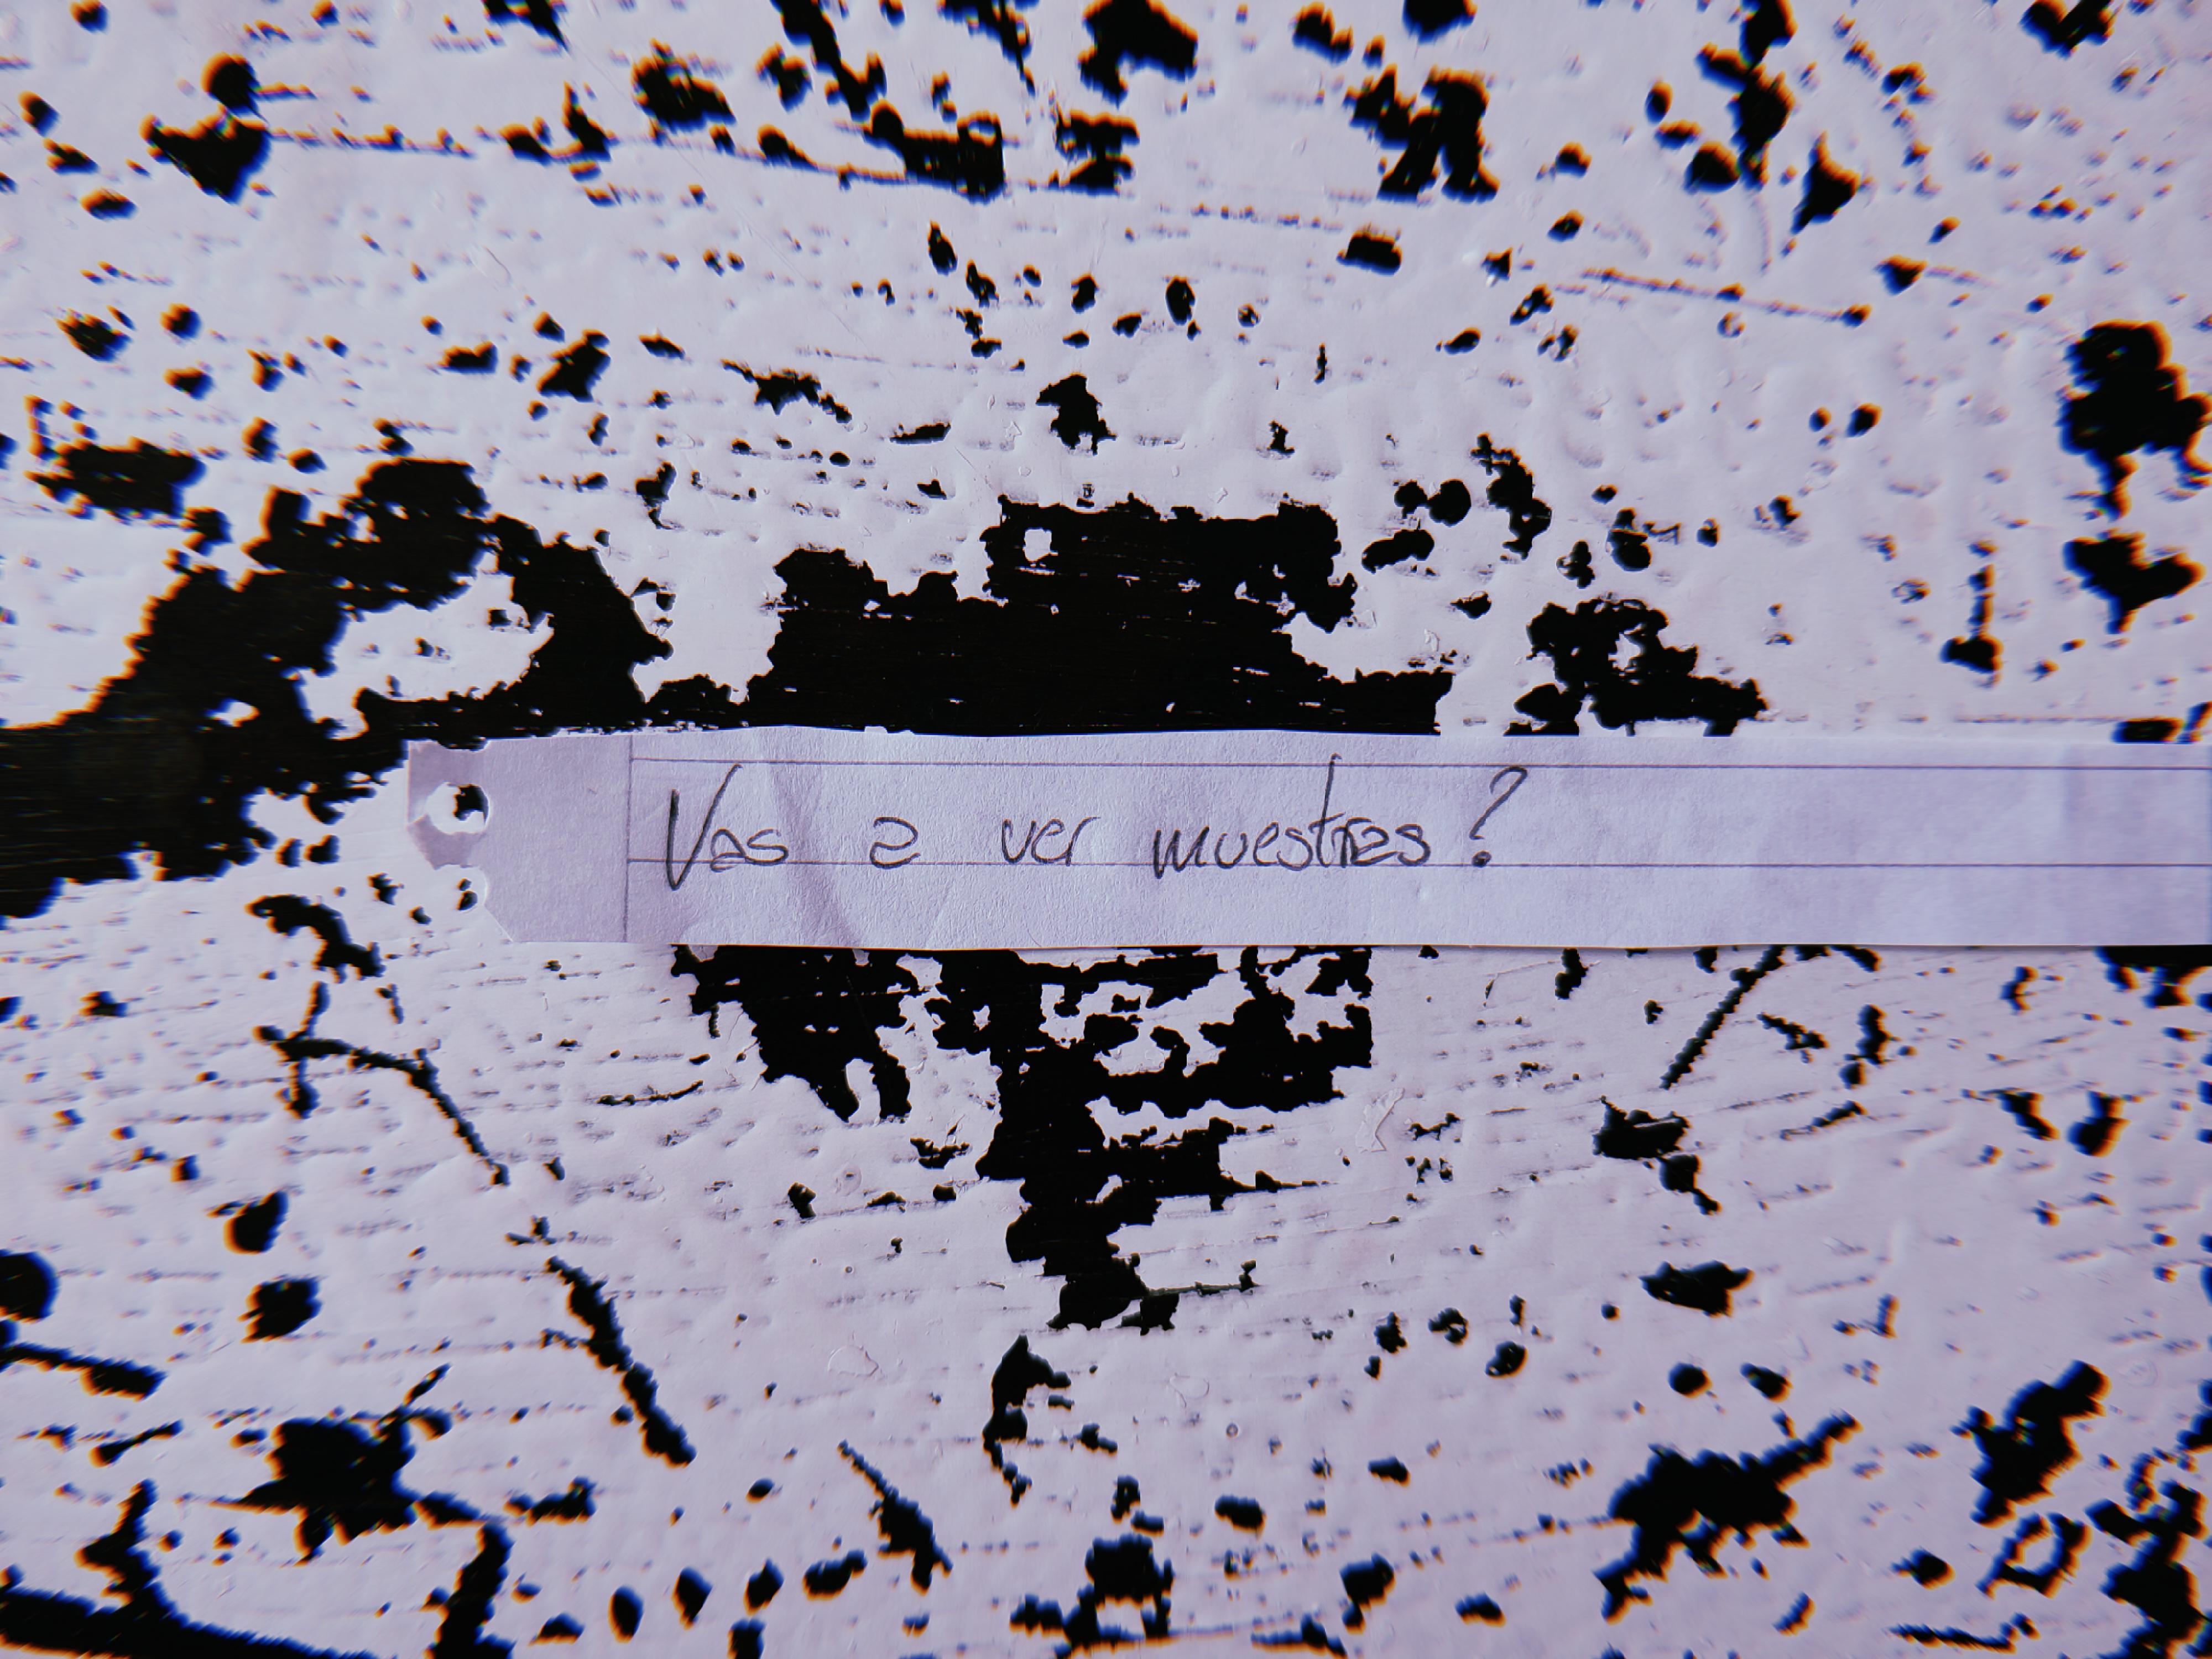 Vas a ver muestras?